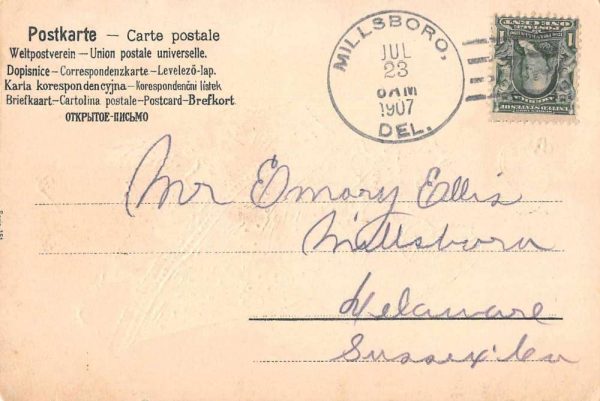 Postkarte — Carte postale
Weltpostverein – Union postale universelle.
Dopisnice – Correspondenzkarte – Levelező-lap.
Karta korespondencyjna – Korespondenční lístek
Briefkaart – Cartolina postale – Postcard – Brefkort.
ОТКРЫТОЕ-ПИСЬМО
MILLSBORO,
JUL
23
6AM
1907
DEL.
ONE CENT
1 1
UNITED STATES OF AMERICA
Mr Emory Ellis
Millsboro
Delaware
Sussex Co